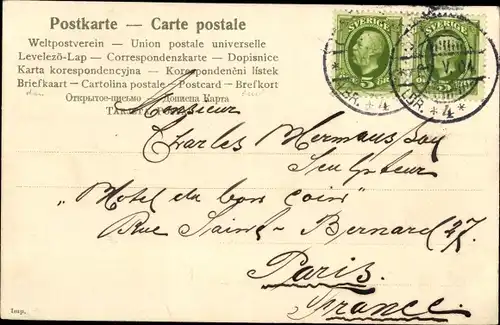 Postkarte — Carte postale
Weltpostverein — Union postale universelle
Levelező-Lap — Correspondenzkarte — Dopisnice
Karta korespondencyjna — Korespondenèni lístek
Briefkaart — Cartolina postale — Postcard — Brefkort
Открытое-письмо — Дописна Карта
SVERIGE
SVERIGE
5
5
4
4
Monsieur
Charles
Sculpteur
„Hotel du bon coin"
Rue Saint-Bernard 27.
Paris.
France.
Imp.